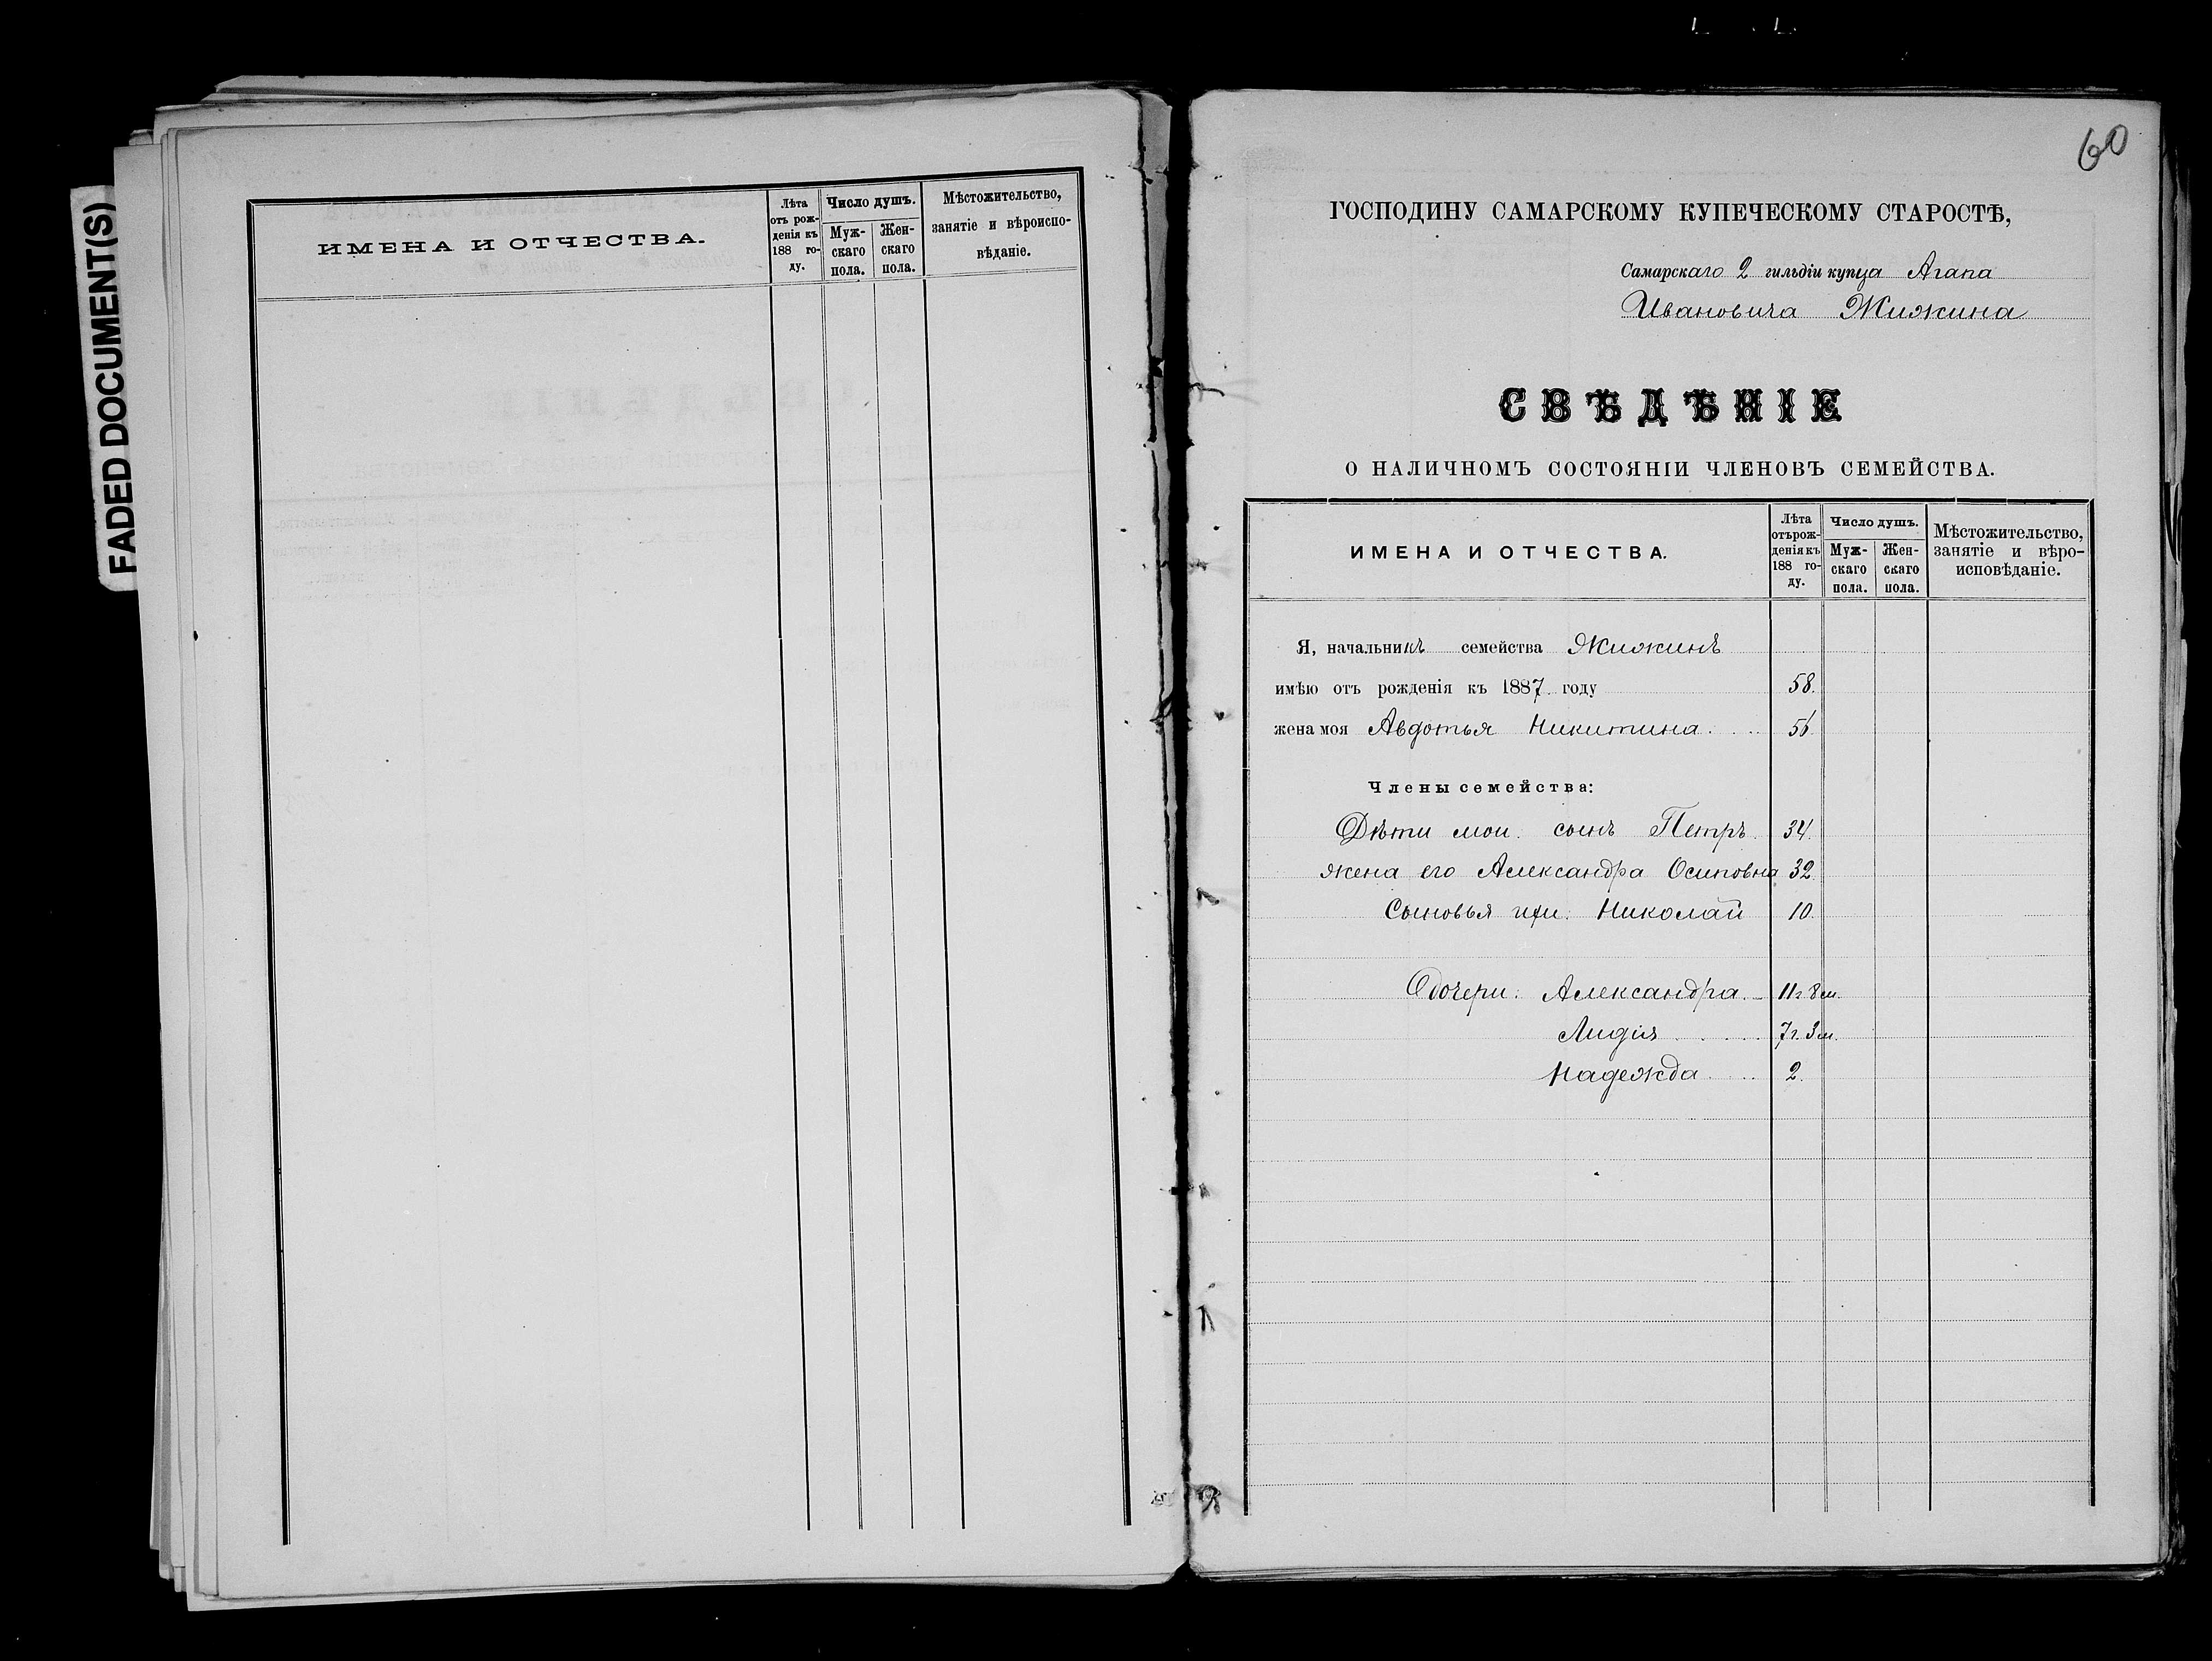 FADED DOCUMENT(S)
ИМЕНА И ОТЧЕСТВА.
Лѣта отъ рожденія къ 188 году.
Число душъ.
Мужскаго пола.
Женскаго пола.
Мѣстожительство, занятіе и вѣроисповѣданіе.
60
ГОСПОДИНУ САМАРСКОМУ КУПЕЧЕСКОМУ СТАРОСТѢ,
Самарскаго 2 гильдіи купца Агапа
Ивановича Жижина
СВѢДѢНІЕ
О НАЛИЧНОМЪ СОСТОЯНІИ ЧЛЕНОВЪ СЕМЕЙСТВА.
ИМЕНА И ОТЧЕСТВА.
Лѣта отъ рожденія къ 188 году.
Число душъ.
Мужскаго пола.
Женскаго пола.
Мѣстожительство, занятіе и вѣроисповѣданіе.
Я, начальникъ семейства Жижинъ
имѣю отъ рожденія къ 1887 году 58.
жена моя Авдотья Никитина
Члены семейства:
Дѣти мои. сынъ Петръ. 34.
жена его Александра Осиповна 32
Сыновья ихъ: Николай 10.
Дочери: Александра. 11 г 8 м.
Лидія 7 г. 3 м.
Надежда 2.